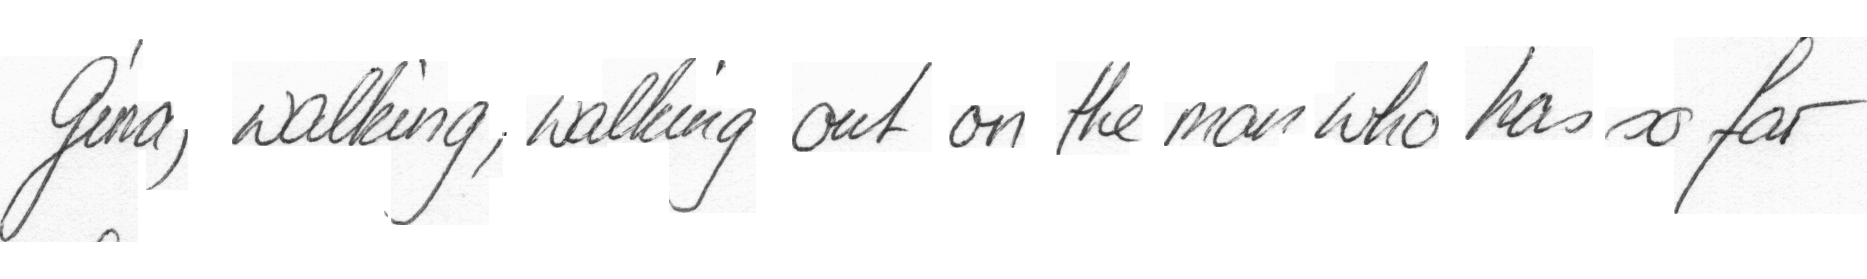 Gina, walking, walking out on the man who has so far